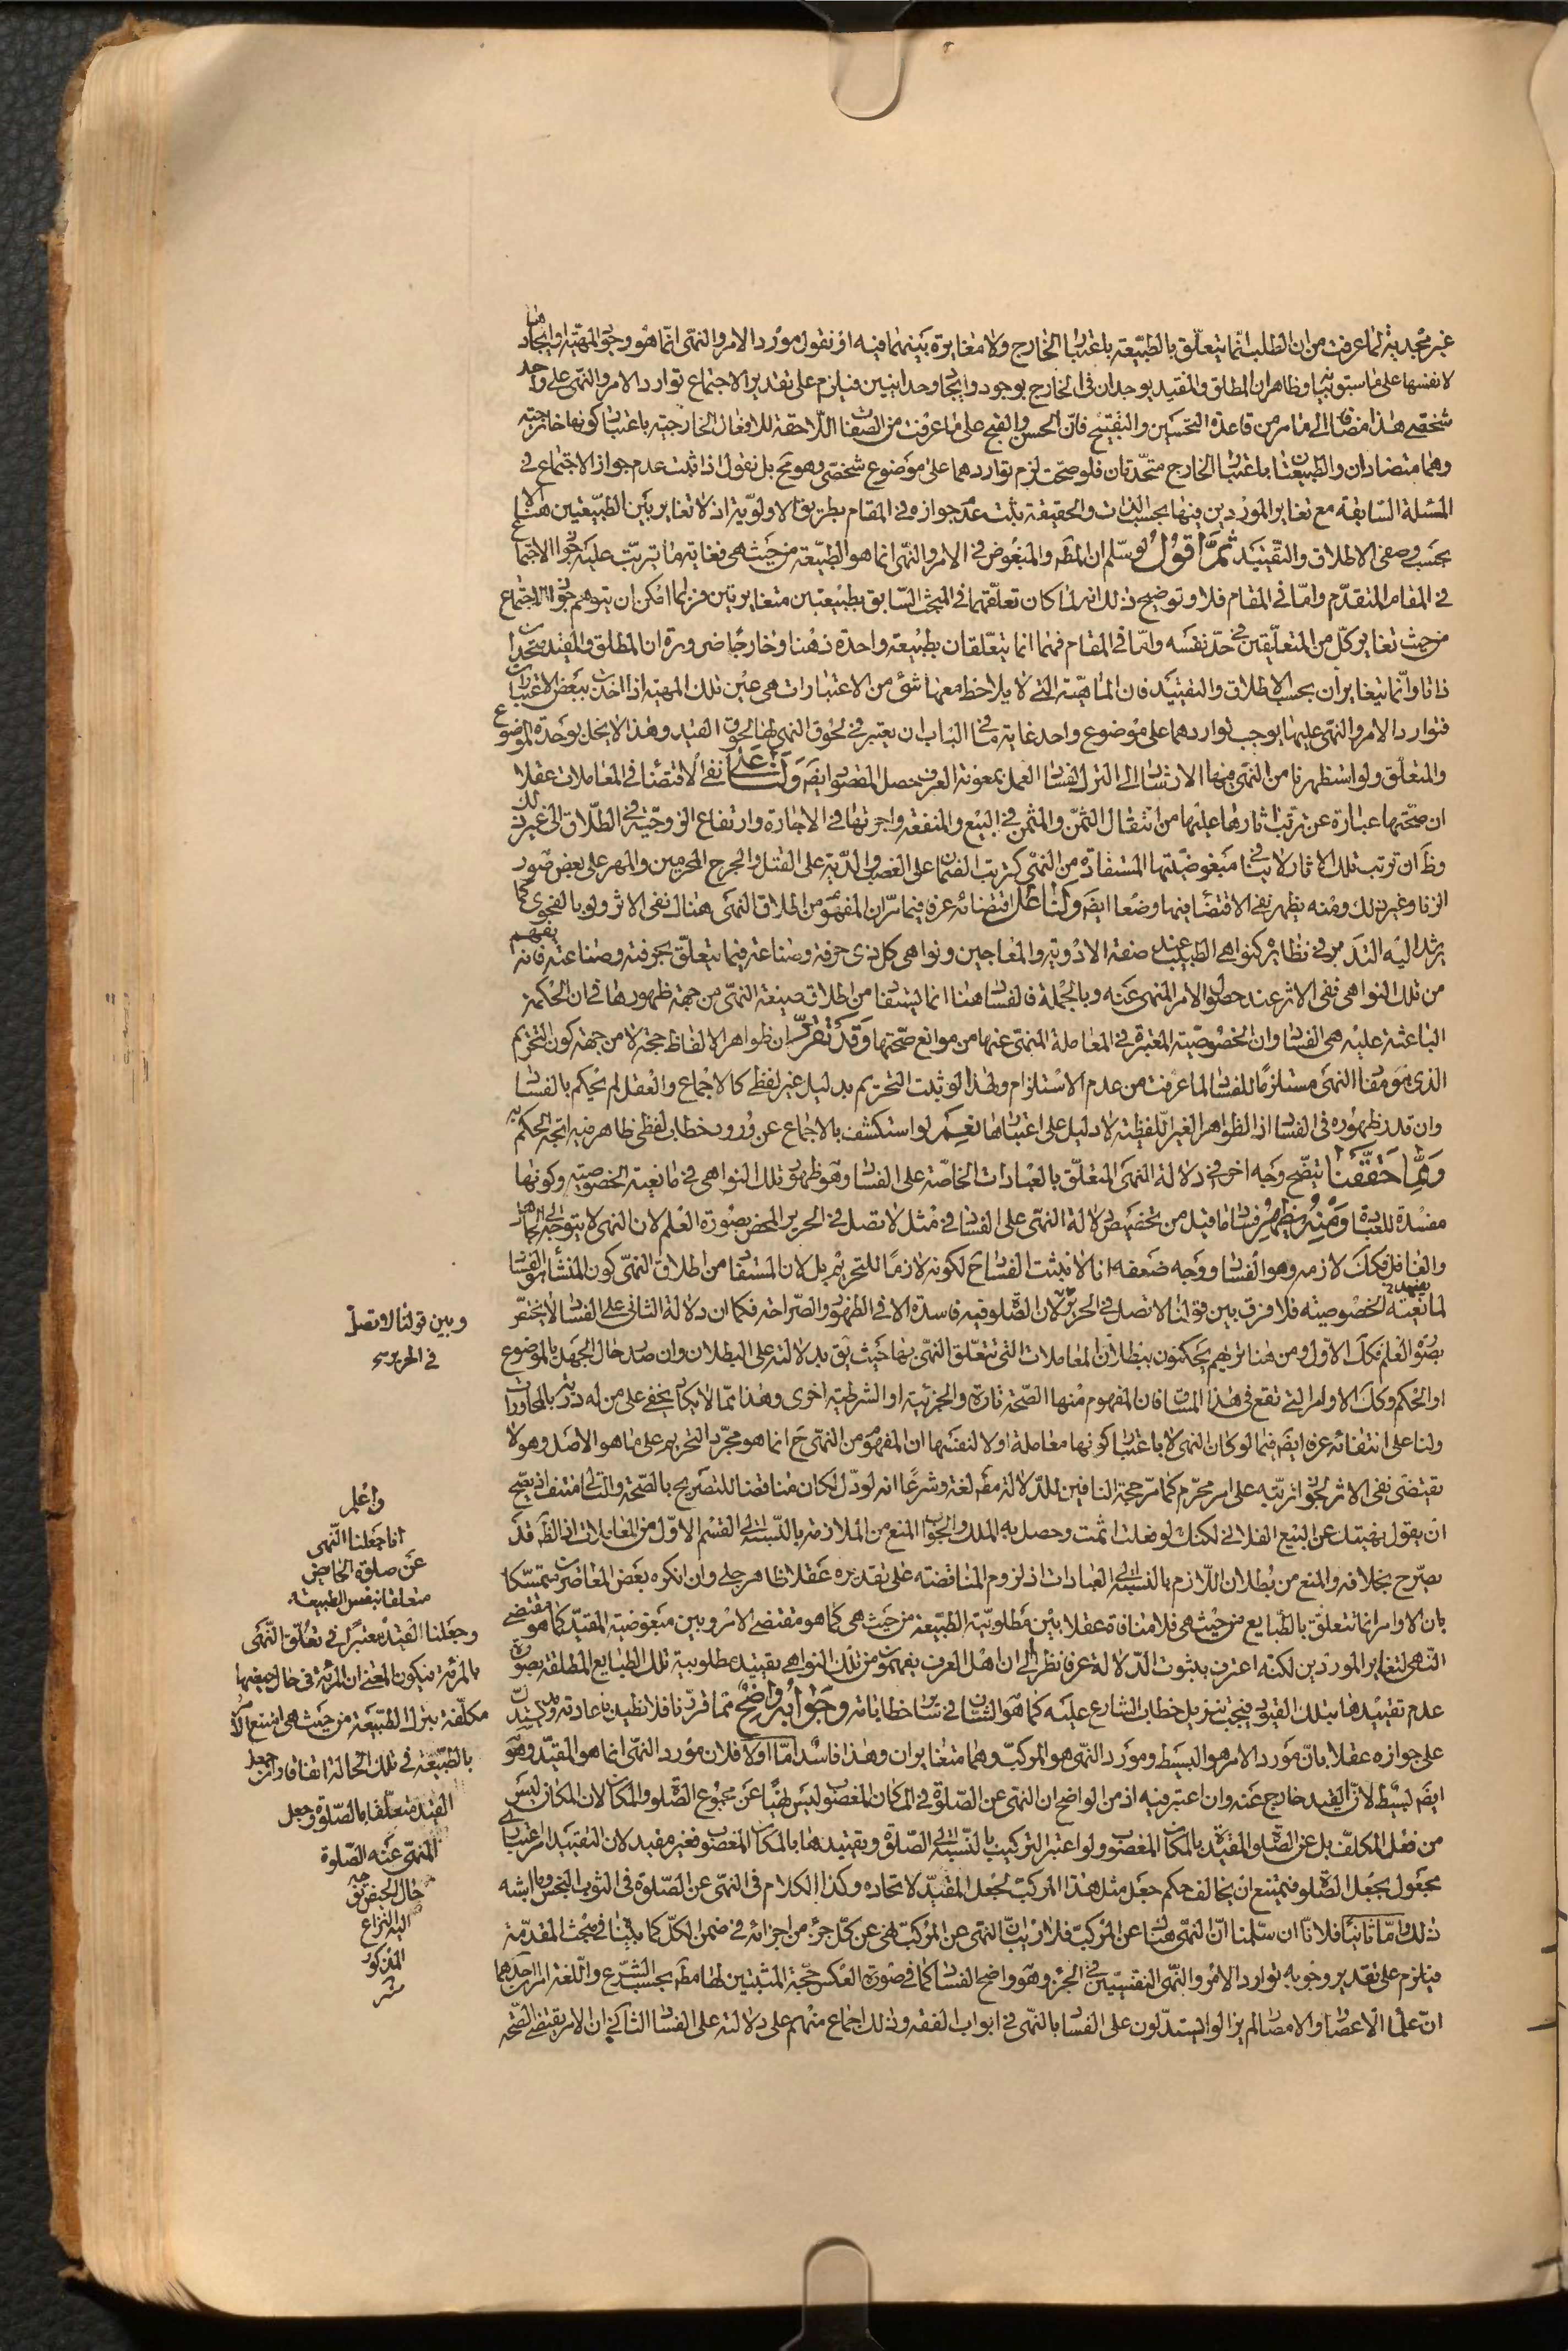 غير مجدية لما عرفت من ان الطلب انما يتعلّق بالطبيعة باعتبار الخارج ولا مغايرة بينهما فيه او نقول مورد الامر والنهى انّما هو وجود المهيّة وايجادها
لا نفسها على ما سبق وظاهر ان المطلق والمقيد يوجدان فى الخارج بوجود واحد وايجاد فيلزم على تقدير الاجتماع توارد الامر والنهى على واحد
شخصى هذا مضافا الى ما مر من قاعدة التحسين والتقبيح فانّ الحسن والقبح على ما عرفت من الصفات اللّاحقة للافعال الخارجية باعتبار كونها خارجية
وهما متضادان والطبيعتان باعتبار الخارج متحدتان فلو صحّت لزم تواردهما على موضوع شخصى وهو مح بل نقول اذا ثبت عدم جواز الاجتماع فى
المسئلة السّابقة مع تغاير الموردين فيها بحسب الذات والحقيقة يثبت عدم جوازه فى المقام بطريق الاولويّة اذ لا تغاير بين الطبيعتين هنا الا
بحسب وصفى الاطلاق والتقييد ثمّ اقول لو سلم ان المط والمبغوض فى الامر والنهى انما هو الطبيعة من حيث هى فغاية ما يترتّب عليه جواز الاجتماع
فى المقام المتقدّم وامّا فى المقام فلا وتوضيح ذلك انه لما كان تعلّقهما فى المبحث السّابق بطبيعتين متغايرتين فربما امكن ان يتوهم جواز الاجتماع
من حيث تغاير كلّ من المتعلّقين فى حدّ نفسه وامّا فى المقام فهما انما يتعلّقان بطبيعة واحدة ذهنا وخارجا ضرورة ان المطلق والمقيد متحدان
ذاتا وانّما يتغايران بحسب الاطلاق والتقييد فان الماهيّة التى لا يلاحظ معها شئ من الاعتبارات هى عين تلك المهية اذا اخذت ببعض الاعتبارات
فتوارد الامر والنهى عليها يوجب تواردهما على موضوع واحد غاية ما فى الباب ان يعتبر فى لحوق النهى لها لحوق القيد وهذا لا يخل بوحدة الموضوع
والمتعلّق ولو استظهرنا من النهى فيها الارشاد الى الترك لفساد العمل بمعونة العرف حصل المقصود ايضا ولنا على نفى الاقتضاء فى المعاملات عقلا
ان صحّتها عبارة عن ترتب آثارها عليها من انتقال الثمن والمثمن فى البيع والمنفعة واجرتها فى الاجارة وارتفاع الزوجيّة فى الطّلاق الى غير ذلك
وظ ان ترتب تلك الاثار لا ينافى مبغوضيّتها المستفادة من النهى كترتب الضمان على الغصب والدّية على القتل والجرح المحرمين والمهر على بعض صور
الزنا وغير ذلك ومنه يظهر نفى الاقتضاء فيها وضعا ايضا ولنا على اقتضائه عرفا فيما مرّ ان المفهوم من اطلاق النهى هناك نفى الاثر ولو بالفحوى كما
يرشد اليه التدبر فى نظائره كنواهى الطبيب عند صفة الادوية والمعاجين ونواهى كل ذى حرفة وصناعة فيما يتعلّق بحرفته وصناعته فانه يفهم
من تلك النواهى نفى الاثر عند حصول الامر المنهى عنه وبالجملة فالفساد هنا انما يستفاد من اطلاق صيغة النهى من جهة ظهورها فى ان الحكمة
الباعثة عليه هى الفساد وان الخصوصيّة المعتبرة فى المعاملة المنهى عنها من موانع صحّتها وقد تقرّر ان ظواهر الالفاظ حجة لا من جهة كون التحريم
الذى هو مفاد النهى مستلزمًا للفساد لما عرفت من عدم الاستلزام ولهذا لو ثبت التحريم بدليل غير لفظى كالاجماع والعقل لم يحكم بالفساد
وان قدر ظهوره فى الفساد اذ الظواهر الغير اللّفظية لا دليل على اعتبارها نعم لو استكشف بالاجماع عن ورود خطاب لفظى ظاهر فيه اتجه الحكم به
وممّا حقّقنا يتضّح وجه اخر فى دلالة النهى المتعلّق بالعبادات الخاصّة على الفساد وهو ظهور تلك النواهى فى مانعية الخصوصية وكونها
مفسدة للعبادة ومنه يظهر فساد ما قيل من تخصيص دلالة النهى على الفساد فى مثل لا تصل فى الحرير المحض بصورة العلم لان النهى لا يتوجّه الى الجاهل
والغافل فكك لازمه وهو الفساد ووجه ضعفه انا لا نثبت الفساد ح لكونه لازمًا للتحريم بل لان المستفاد من اطلاق النهى كون المنشأ هو الفساد
لمانعية الخصوصية فلا فرق بين قولنا لا تصل فى الحرير لان الصّلوة فيه فاسدة الا فى الظهور والصّراحة فكما ان دلالة الثانى على الفساد لا يختصّ
بصورة العلم فكك الاوّل ومن هنا تريهم يحكمون ببطلان المعاملات التى تتعلّق النهى بها حيث يق بدلالته على البطلان وان صدر حال الجهل بالموضوع
او الحكم وكك الاوامر التى تقع فى هذا المساق فان المفهوم منها الصّحة تارة والجزئية او الشرطية اخرى وهذا ممّا لا يكاد يخفى على من له دربة بالمحاورات
ولنا على انتفائه عرفا ايضا فيما لو كان النهى لا باعتبار كونها معاملة او لا لنفسها ان المفهوم من النهى ح انما هو مجرّد التحريم على ما هو الاصل وهو لا
يقتضى نفى الاثر لجواز ترتّبه على امر محرّم كما مرّ حجة النافين للدّلالة مط لغة وشرعًا انه لو دلّ لكان مناقضا للتصريح بالصّحة والتالى منتف اذ يصحّ
ان يقول نهيتك عن البيع الفلانى لكنك لو فعلت اثمت وحصل به الملك والجواب المنع من الملازمة بالنّسبة الى القسم الاوّل من المعاملات اذ الظ قد
يصرّح بخلافه والمنع من بطلان اللّازم بالنسبة الى العبادات اذ لزوم المناقضة على تقديره عقلا ظاهر جلى وان انكره بعض المعاصرين متمسّكا
بان الاوامر انما تتعلّق بالطّبايع من حيث هى فلا منافاة عقلا بين مطلوبيّة الطبيعة من حيث هى كما هو مقتضى الامر وبين مبغوضية المقيّد كما هو مقتضى
النّهى لتغاير الموردين لكنّه اعترف بثبوت الدّلالة عرفا نظرا الى ان اهل العرف يفهمون من تلك النواهى تقييد مطلوبية تلك الطبايع المطلقة بصورة
عدم تقييدها بتلك القيود فيجب تنزيل خطاب الشارع عليه كما هو الشان فى سائر خطاباته وجوابه واضح ممّا قرّرنا فلا نطيل باعادته وقد يستدل
على جوازه عقلا بانّ مورد الامر هو البسيط ومورد النّهى هو المركب وهما متغايران وهذا فاسد امّا اولا فلان مورد النّهى انما هو المقيّد وهو
ايضا بسيط لان القيد خارج عنه وان اعتبر فيه اذ من الواضح ان النهى عن الصّلوة فى المكان المغصوب ليس نهيًا عن مجموع الصّلوة والمكان لان المكان ليس
من فعل المكلّف بل عن الصّلوة المقيّدة بالمكان المغصوب ولو اعتبر التركيب بالنّسبة الى الصّلوة وتقييدها بالمكان المغصوب فغير مفيد لان التقييد امر اعتبارى
مجعول بجعل الصّلوة فيمتنع ان يخالف حكم جعل مثل هذا المركّب لجعل المقيّد لاتحاده وكذا الكلام فى النّهى عن الصّلوة فى الثوب النجس وما اشبه
ذلك وامّا ثانيًا فلانّا ان سلّمنا انّ النّهى هنا عن المركّب فلا ريب انّ النهى عن المركّب نهى عن كلّ جزء من اجزائه فى ضمن الكلّ كما بيّنّا فى مبحث المقدّمة
فيلزم على تقدير وجوبه توارد الامر والنّهى النفسيّين فى الجزء وهو واضح الفساد كما فى صورة العكس حجّة المثبتين لها مط بحسب الشّرع واللّغة امران احدهما
انّ علماء الاعصار والامصار لم يزالوا يستدلّون على الفساد بالنّهى فى ابواب الفقه وذلك اجماع منهم على دلالته على الفساد الثانى ان الامر يقتضى الصّحّة
وبين قولنا لا تصل
فى الحرير
واعلم
انا جعلنا النّهى
عن صلوة الحايض
متعلقا بنفس الطبيعة
وجعلنا القيد معتبرًا فى تعلّق النّهى
بالمرئة فيكون المعنى ان المرئة فى حال حيضها
مكلّفة بترك الطّبيعة من حيث هى امتنع الامر
بالطّبيعة فى تلك الحالة اتفاقا وان جعل
القيد متعلّقا بالصّلوة وجعل
المنهى عنه الصّلوة
حال الحيض توجه
اليه النزاع
المذكور